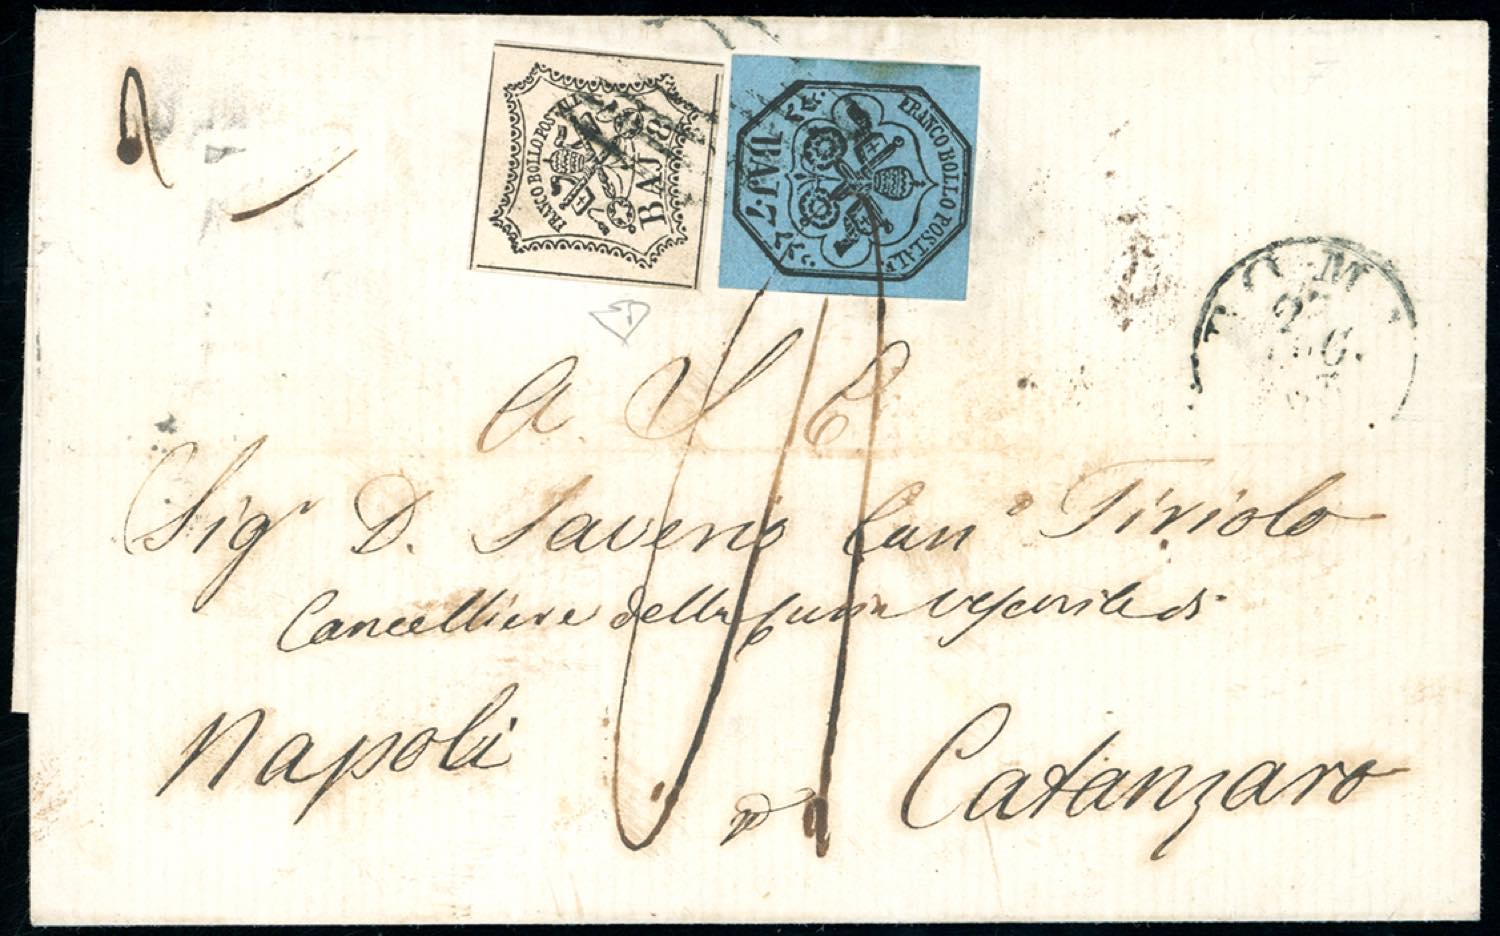 FRANCO BOLLO POSTALE
BAJ 8
FRANCO BOLLO POSTALE
BAJ. 7
ROMA
27
A S E
Sigr D. Saverio Canco Tiriolo
Cancelliere della Curia Vescovile di
Napoli pr Catanzaro